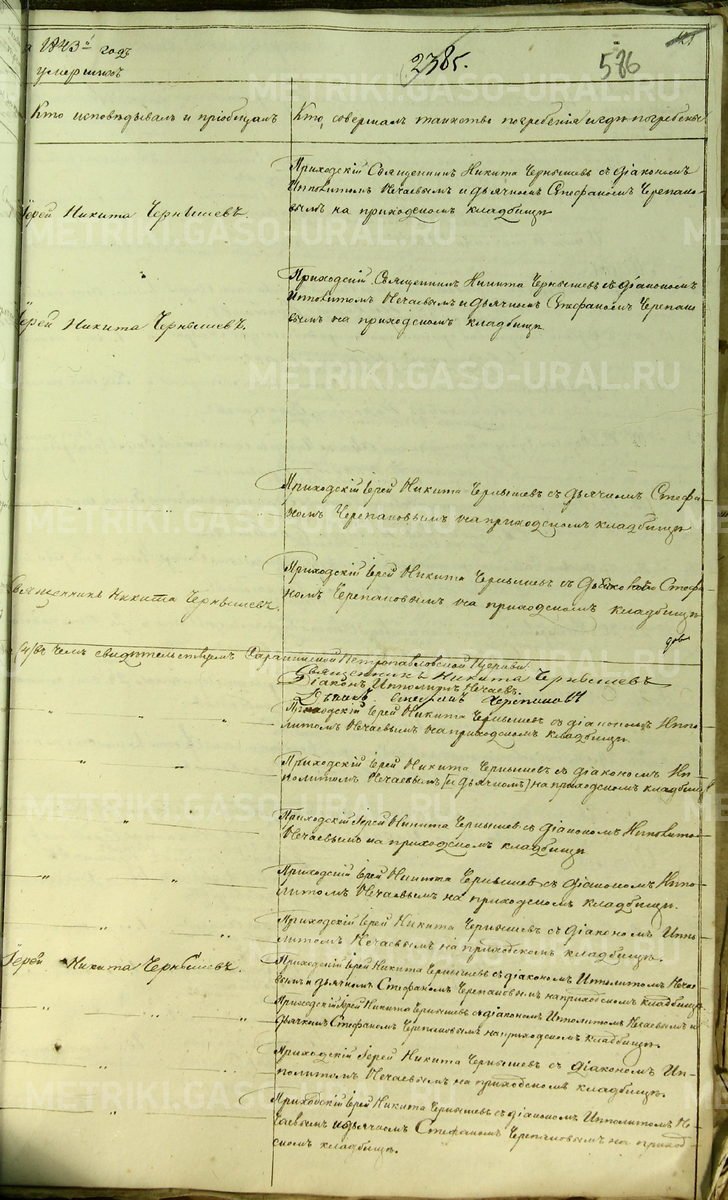 1843й годъ
умершихъ
2385.
586
Кто исповѣдывалъ и пріобщалъ
Кто совершалъ таинство погребенія и гдѣ погребены
Приходскій Священникъ Никита Чернышевъ съ діакономъ
Ипполитомъ Нечаевымъ и дьячкомъ Стефаномъ Черепано-
вымъ на приходскомъ кладбищѣ
Іерей Никита Чернышевъ.
Приходскій Священникъ Никита Чернышевъ съ діакономъ
Ипполитомъ Нечаевымъ и дьячкомъ Стефаномъ Черепано
вымъ на приходскомъ кладбищѣ
Іерей Никита Чернышевъ.
Приходскій Іерей Никита Чернышевъ съ дьячкомъ Стефа-
номъ Черепановымъ на приходскомъ кладбищѣ
Приходскій Іерей Никита Чернышевъ съ Стефа-
номъ Черепановымъ на приходскомъ кладбищѣ
Священникъ Никита Чернышевъ.
въ чемъ свидѣтельствуемъ Петропавловской Церкви
Священникъ Никита Чернышевъ
Діаконъ Ипполитъ Нечаевъ.
Дьячекъ Стефанъ Черепановъ
Приходскій Іерей Никита Чернышевъ съ діакономъ Иппо-
литомъ Нечаевымъ на приходскомъ кладбищѣ.
Приходскій Іерей Никита Чернышевъ съ діакономъ Ип-
политомъ Нечаевымъ [и дьячкомъ] на приходскомъ кладбищѣ
Приходскій Іерей Никита Чернышевъ съ діакономъ Ипполито-
Нечаевымъ на приходскомъ кладбищѣ
Приходскій Іерей Никита Чернышевъ съ діакономъ Иппо-
литомъ Нечаевымъ на приходскомъ кладбищѣ.
Приходскій Іерей Никита Чернышевъ съ діакономъ Иппо-
литомъ Нечаевымъ на приходскомъ кладбищѣ.
Іерей Никита Чернышевъ.
Приходскій Іерей Никита Чернышевъ съ діакономъ Ипполитомъ Нечае-
вымъ и дьячкомъ Стефаномъ Черепановымъ на приходскомъ кладбищѣ
Приходскій Іерей Никита Чернышевъ съ діакономъ Ипполитомъ Нечаевымъ и
дьячкомъ Стефаномъ Черепановымъ на приходскомъ кладбищѣ.
Приходскій Іерей Никита Чернышевъ съ діакономъ Ип-
политомъ Нечаевымъ на приходскомъ кладбищѣ.
Приходскій Іерей Никита Чернышевъ съ діакономъ Ипполитомъ Не-
чаевымъ и дьячкомъ Стефаномъ Черепановымъ на приход-
скомъ кладбищѣ.
METRIKI.GASO-URAL.RU